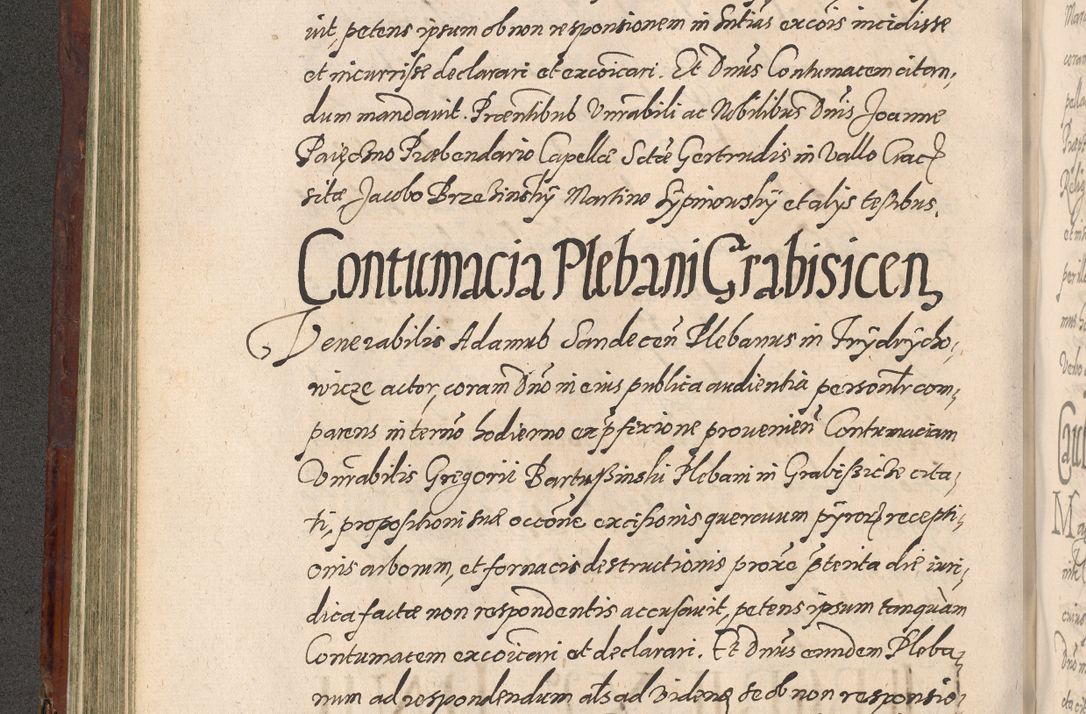 uit, petens ipsum ob non responsionem in sn̄tias exco͞is incidisse
et incurrisse declarari et exco͞icari. Et Dn̄us Contumacem citan,
dum mandauit. Præn̄tibus Vn̄rabili ac Nobilibus Dn̄is Joanne
Paięcno Præbendario Capellæ Sctæ Gertrudis in Vallo Crac
sitæ Jacobo Brzezinsky Martino Sypniowsky et alys testibus.
Contumacia Plebani Grabisicen,
Venerabilis Adamus Sandecen̄ Plebanus in Frydrycho,
wicze actor, coram Dn̄o in eius publica audientia person̄lr com,
parens in term̄o hodierno ex p̄fixione prouenien̄ Contumaciam
Vn̄rabilis Gregorii Bartussinski Plebani in Grabissicze cita,
ti, propositioni suæ occo͞ne excisionis quercuum pyrorum recepti,
onis arborum, et fornacis destructionis proxe p̄terita die iuri,
dica factæ non respondentis accusauit, petens ipsum tanquàm
Contumacem exco͞icari et declarari. Et Dn̄us eundem Pleba,
num ad respondendum als ad videndū se ob non responsio,